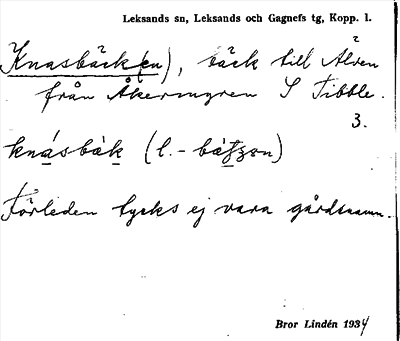 Leksands sn, Leksands och Gagnefs tg, Kopp. l.
Knasbäck(en), bäck till Älven
från Åkermyren S Tibble.
3.
knásbàk (l. - bàtsɘn)
Förleden tycks ej vara gårdsnamn.
Bror Lindén 1934